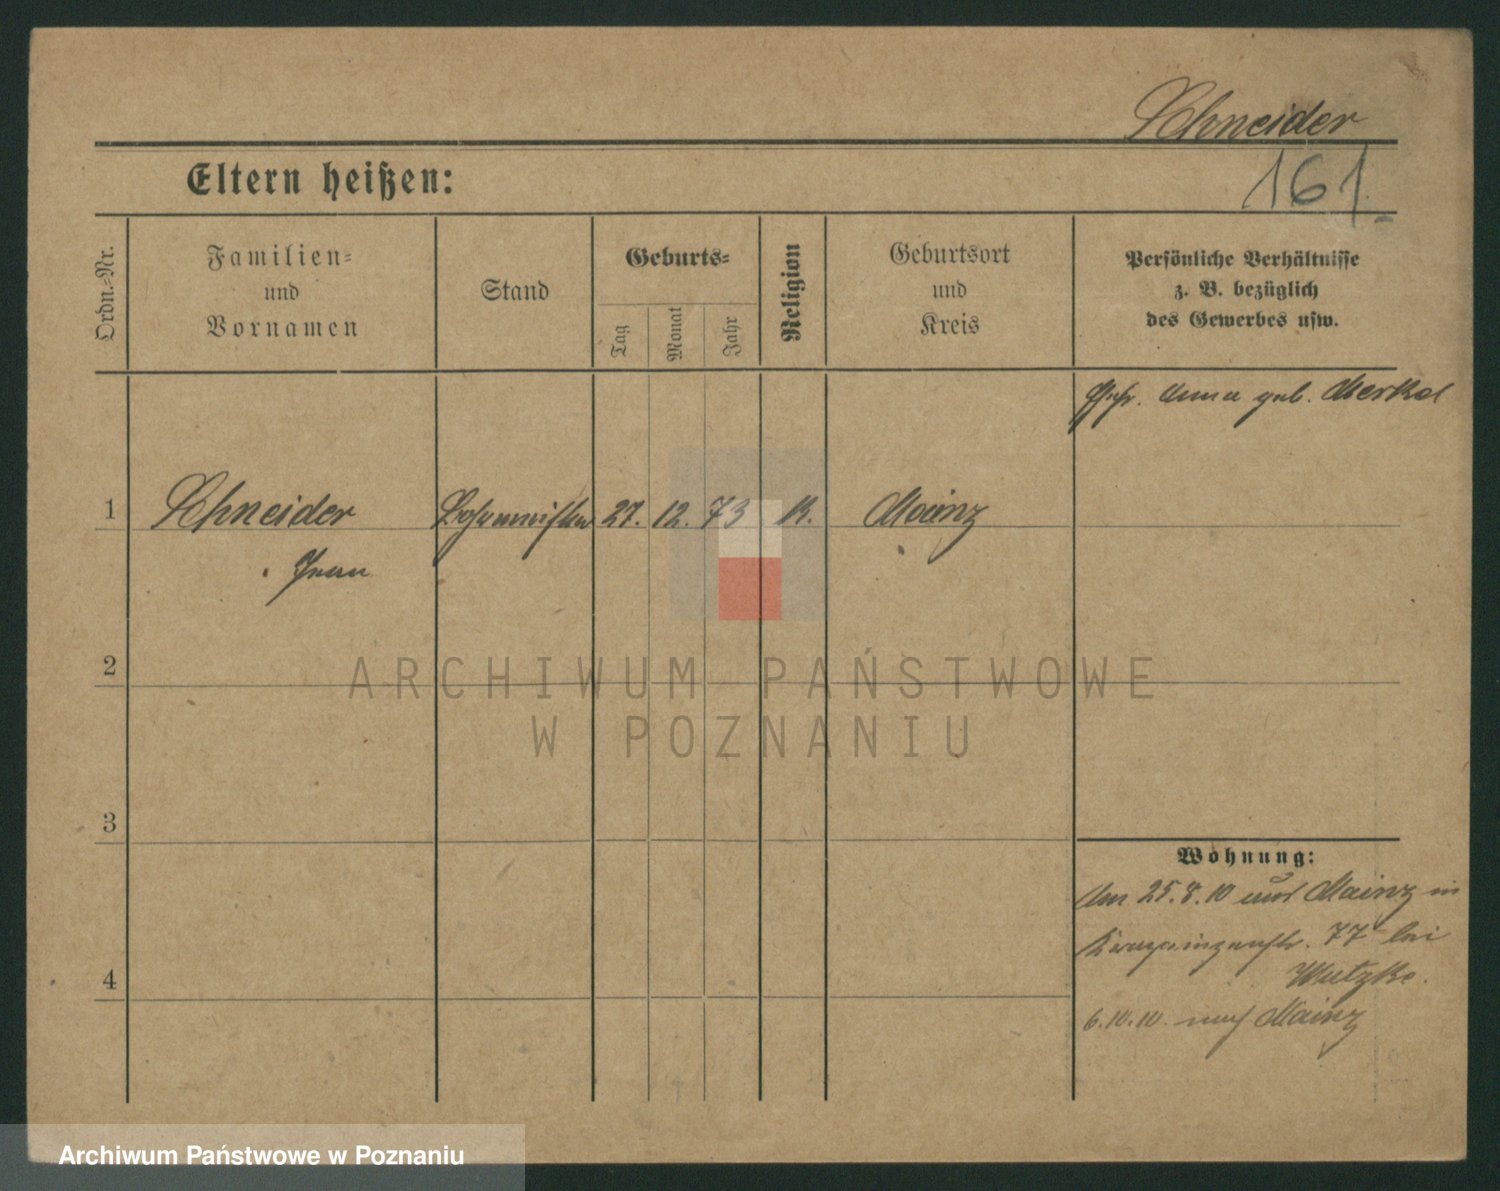 Schneider
161.
Eltern heißen:
Ordn.-Nr.
Familien-
und
Vornamen
Stand
Geburts-
Tag
Monat
Jahr
Religion
Geburtsort
und
Kreis
Persönliche Verhältnisse
z. B. bezüglich
des Gewerbes usw.
Anna geb. Merkel
1
Schneider
27. 12. 73
K.
Mainz
Jean
2
3
4
Wohnung:
Am 25.8.10 aus Mainz in
77 bei
Wutzke.
6.10.10. nach Mainz
ARCHIWUM PAŃSTWOWE
W POZNANIU
Archiwum Państwowe w Poznaniu